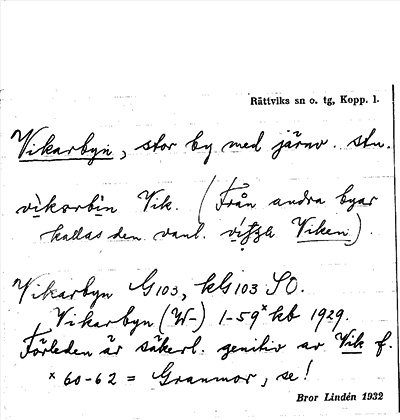 Rättviks sn o. tg, Kopp. l.
Vikarbyn, stor by med järnv. stn.
vikarbin Vik. (Från andra byar
kallas den vanl. Viken).
Vikarbyn G103, kG103 SO.
Vikarbyn (W-) 1-59ˣ kb 1929.
Förleden är säkerl. genitiv av Vik f.
ˣ 60-62 = Granmor, se!
Bror Lindén 1932